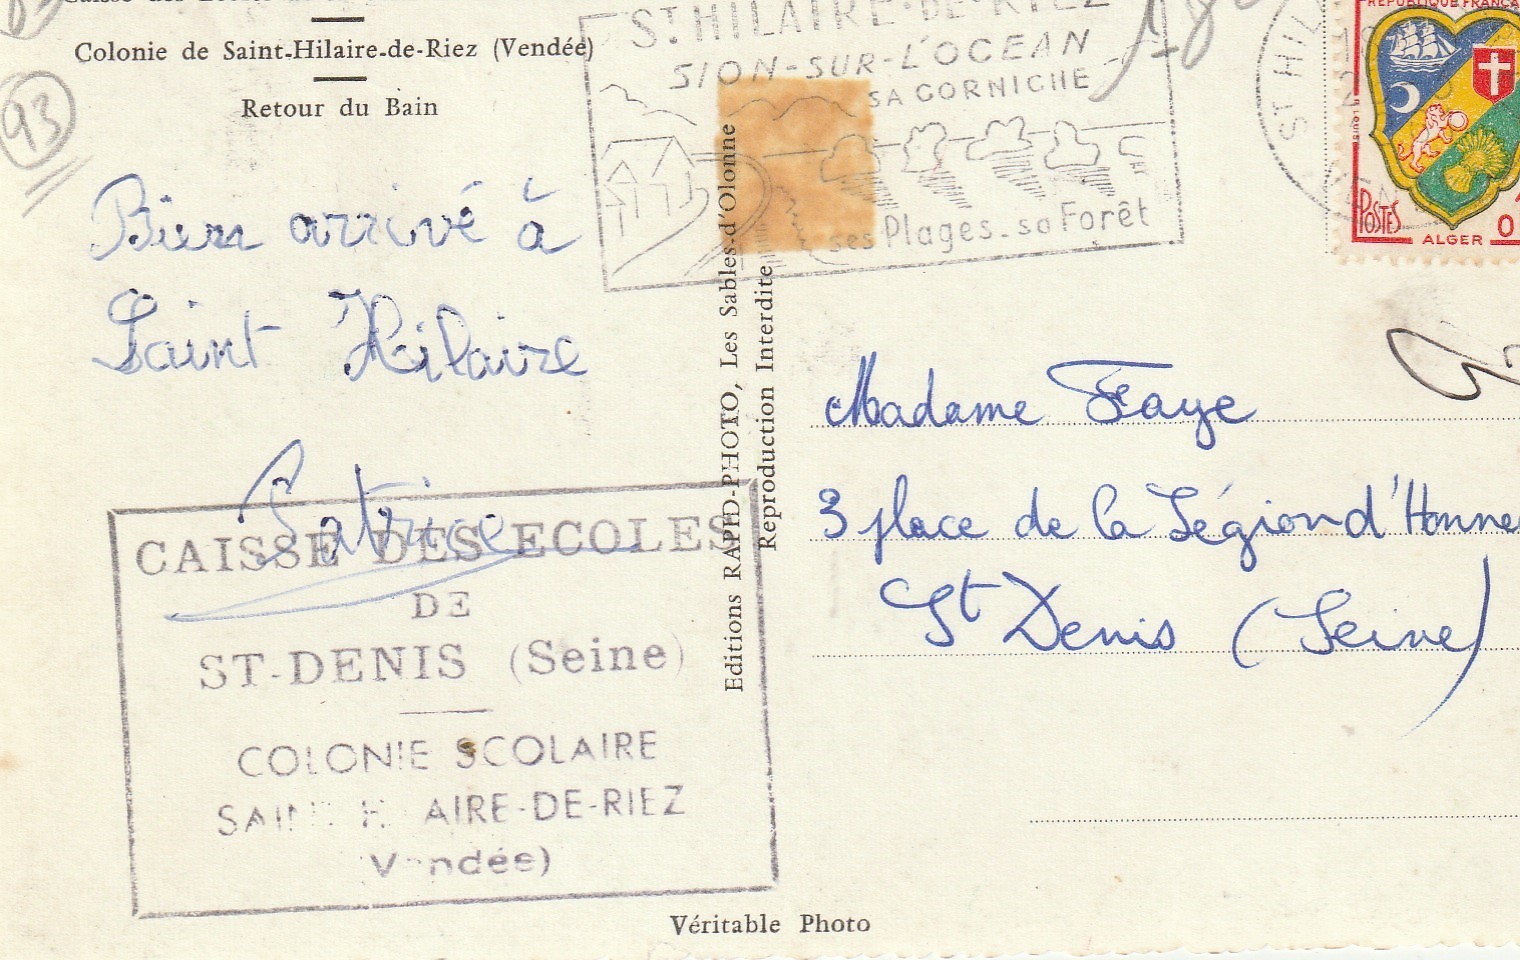 Colonie de Saint-Hilaire-de-Riez (Vendée)
Retour du Bain
93
Bien arrivé à
Saint Hilaire
Patrice
CAISSE DES ECOLES
DE
ST-DENIS (Seine)
COLONIE SCOLAIRE
SAIN H AIRE-DE-RIEZ
V ndée)
Editions RAPID-PHOTO, Les Sables-d'Olonne
Reproduction Interdite
Véritable Photo
ST HILAIRE-DE-RIEZ
SION-SUR-L'OCEAN
SA CORNICHE
ses Plages-sa Forêt
ST HIL
REPUBLIQUE FRANÇA
POSTES
ALGER
0
Madame Faye
3 place de la Légion d'Honne
St Denis (Seine)